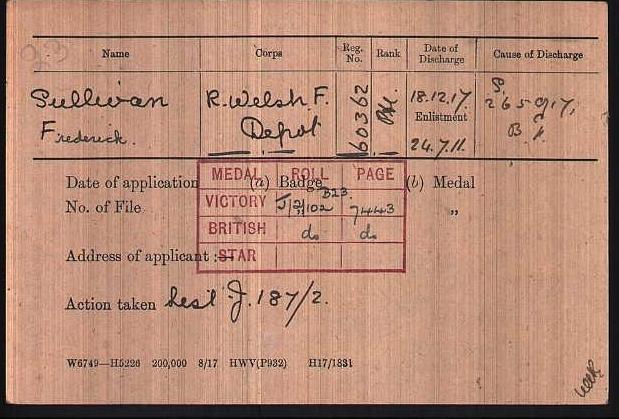 Name Corps Reg. No. Rank Date of Discharge Cause of Discharge
Sullivan R. Welsh F. 60362 Pte. 18.12.17.
Frederick. Depot Enlistment
24.7.11.
MEDAL ROLL PAGE
Date of application (a) Badge (b) Medal
VICTORY J/2/102 B23 7443
No. of File „
BRITISH do do
Address of applicant :
STAR
Action taken J. 187/2.
W6749—H5226 200,000 8/17 HWV(P932) H17/1831